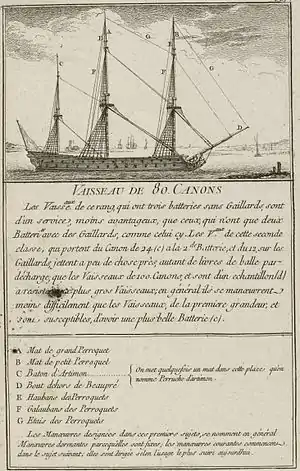 VAISSEAU DE 80. CANONS
Les Vaiss.aux de ce rang qui ont trois batteries sans Gaillards, sont
d'un service moins avantageux, que ceux qui n'ont que deux
Batteri avec des Gaillards, comme celui cy. Les V.aux de cette seconde
classe, qui portent du Canon de 24. (c) a la 2.de Batterie, et du 12. sur les
Gaillards, jettent a peu de chose près autant de livres de balle par
décharge que les Vaisseaux de 100. Canons, et sont d'un échantillon (d)
a résister plus gros Vaisseaux; en général ils se manœuvrent
moins difficilement que les Vaisseaux, de la premiere grandeur, et
sont susceptibles, d'avoir une plus belle Batterie (e).
A Mat de grand Perroquet
B Mat de petit Perroquet
C Baton d'Artimon
On met quelquefois un mat dans cette place qu'on
nomme Perruche d'artimon.
D Bout dehors de Beaupré
E Haubans des Perroquets
F Galaubans des Perroquets
G Etais des Perroquets
Les Manœuvres designées dans ces premiers sujets, se nomment en général
Manœuvres dormantes parcequ'elles sont fixes, les manœuvres courantes commencent
dans le sujet suivant; elles sont dirigé selon l'usage le plus suivi aujourdhui
C
B
A
G
B
G
F
F
E
D